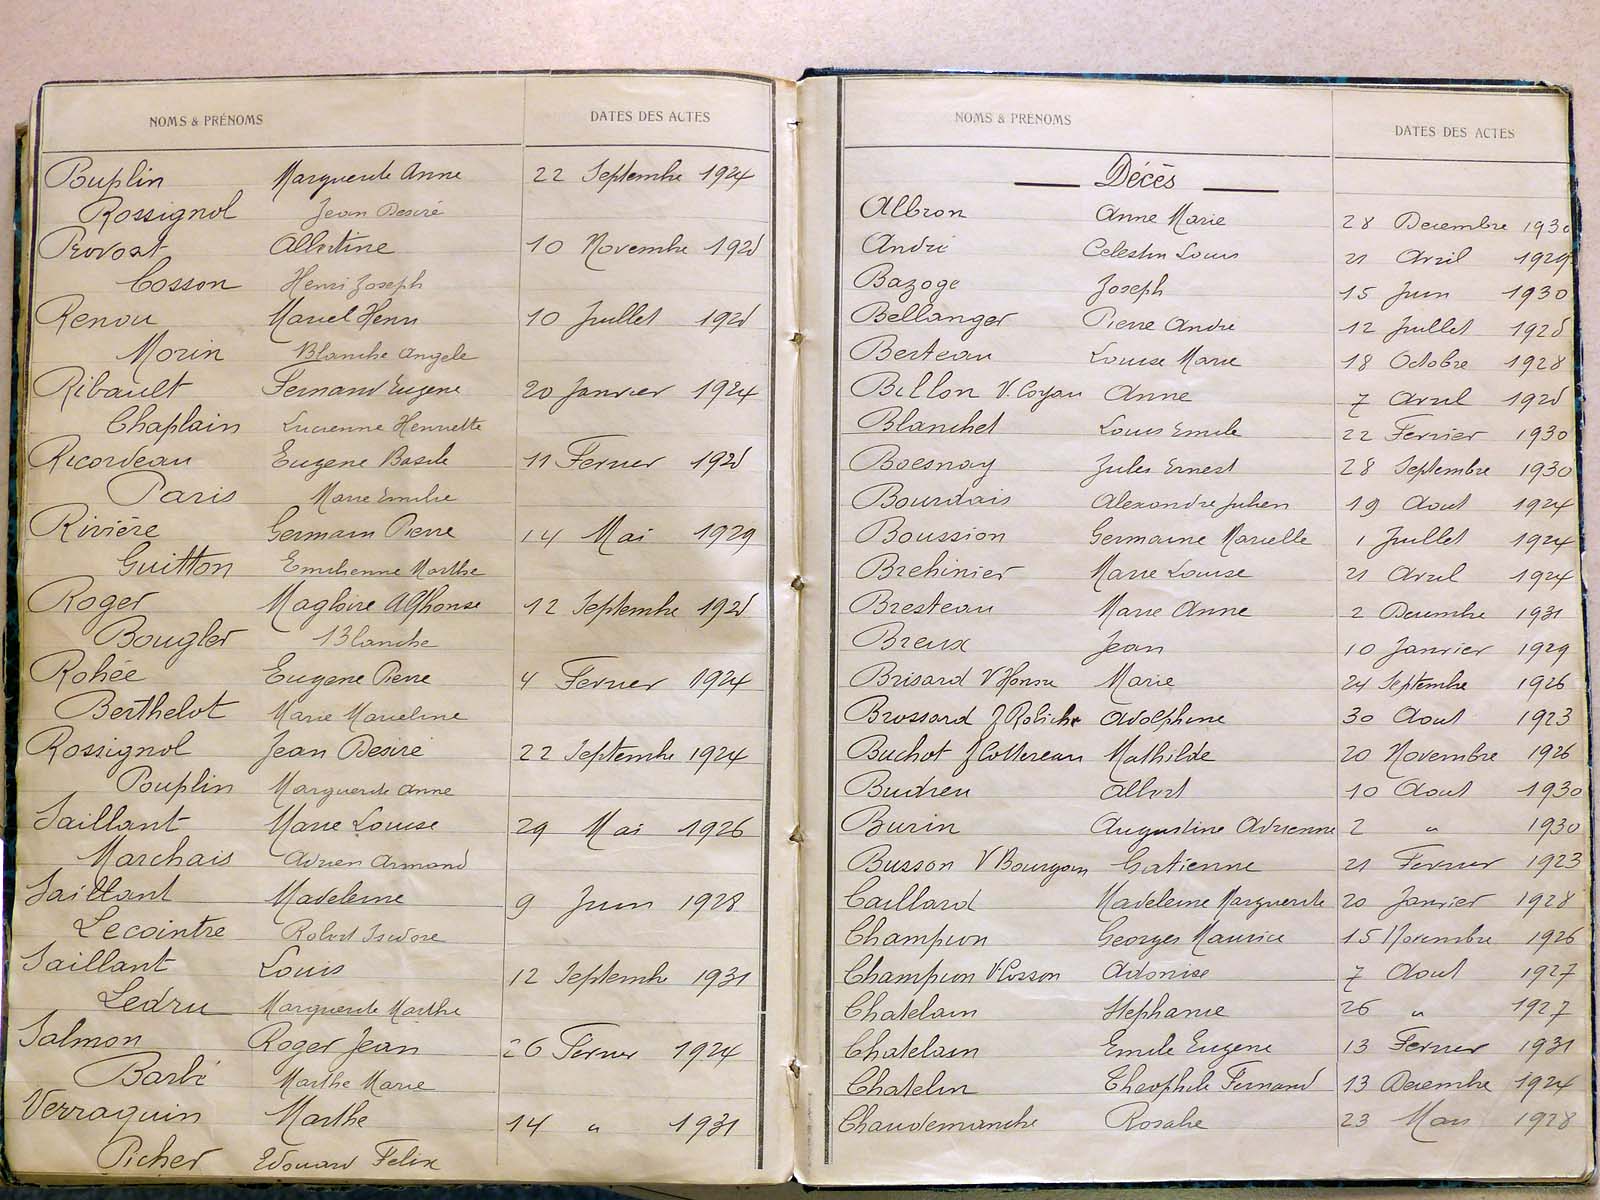 NOMS & PRÉNOMS DATES DES ACTES
Puplin Marguerite Anne 22 Septembre 1924
Rossignol Jean Desiré
Provost Albertine 10 Novembre 1925
Cosson Henri Joseph
Renou Marcel Henri 10 Juillet 1925
Morin Blanche Angele
Ribault Fernand Eugene 20 Janvier 1924
Chaplain Lucienne Henriette
Ricordeau Eugene Basile 11 Fevrier 1925
Paris Marie Emilie
Rivière Germain Pierre 14 Mai 1929
Guitton Emilienne Marthe
Roger Magloire Alphonse 12 Septembre 1925
Bougler Blanche
Rohée Eugene Pierre 4 Fevrier 1924
Berthelot Marie Marceline
Rossignol Jean Desiré 22 Septembre 1924
Pouplin Marguerite Anne
Saillant Marie Louise 29 Mai 1926
Marchais Adrien Armand
Saillant Madeleine 9 Juin 1928
Lecointre Robert Isidore
Saillant Louis 12 Septembre 1931
Ledru Marguerite Marthe
Salmon Roger Jean 26 Fevrier 1924
Barbé Marthe Marie
Verraquin Marthe 14 " 1931
Picher Edouard Felix
NOMS & PRÉNOMS DATES DES ACTES
Décès
Albron Anne Marie 28 Decembre 1930
André Celestin Louis 21 Avril 1929
Bazoge Joseph 15 Juin 1930
Bellanger Pierre André 12 Juillet 1925
Berteau Louise Marie 18 Octobre 1928
Billon V. Anne 7 Avril 1925
Blanchet Louis Emile 22 Fevrier 1930
Boesnay Jules Ernest 28 Septembre 1930
Bourdais Alexandre Julien 19 Aout 1924
Boussion Germaine Marcelle 1 Juillet 1924
Brehinier Marie Louise 21 Avril 1924
Bresteau Marie Anne 2 Decembre 1931
Breux Jean 10 Janvier 1929
Brisard V Marie 24 Septembre 1926
Brossard Adolphine 30 Aout 1923
Buchot f Cottereau Mathilde 20 Novembre 1926
Budreu Albert 10 Aout 1930
Burin Augustine Adrienne 2 " 1930
Busson V Bourgoin Gatienne 21 Fevrier 1923
Caillard Madeleine Marguerite 20 Janvier 1928
Champion Georges Maurice 15 Novembre 1926
Champion V. Cosson Adonise 7 Aout 1927
Chatelain Stephanie 26 " 1927
Chatelain Emile Eugene 13 Fevrier 1931
Chatelin Theophile Fernand 13 Decembre 1924
Chaudemanche Rosalie 23 Mars 1928